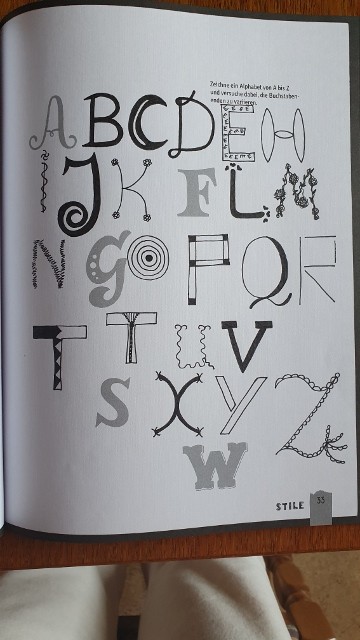 Zeichne ein Alphabet von A bis Z
und versuche dabei, die Buchstaben-
enden zu variieren.
A B C D E H
I J K F L M
N G O P Q R
T T U V
S X Y Z
W
STILE 33